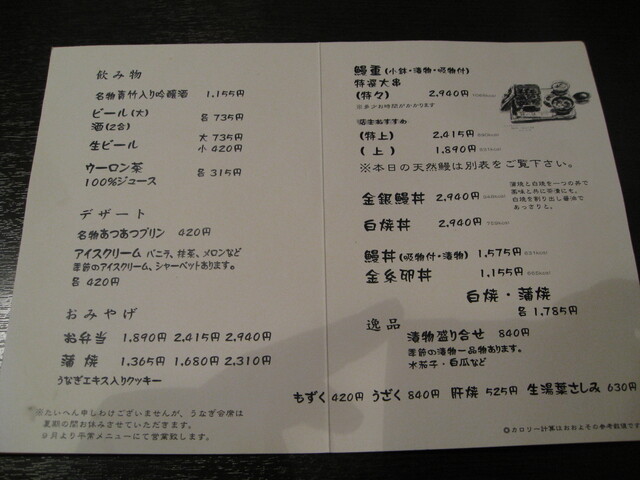 飲み物
名物青竹入り吟醸酒 1.155円
ビール(大) 各 735円
酒(2合)
生ビール 大 735円
小 420円
ウーロン茶 各 315円
100%ジュース
デザート
名物あつあつプリン 420円
アイスクリーム バニラ、抹茶、メロンなど
季節のアイスクリーム、シャーベットあります。
各 420円
おみやげ
お弁当 1.890円 2.415円 2.940円
蒲焼 1.365円 1.680円 2.310円
うなぎエキス入りクッキー
※たいへん申しわけございませんが、うなぎ会席は
夏期の間お休みさせていただきます。
9月より平常メニューにて営業致します。
鰻重(小鉢・漬物・吸物付)
特選大串
(特々) 2,940円
※多少お時間がかかります
店主おすすめ
(特上) 2,415円
(上) 1,890円
※本日の天然鰻は別表をご覧下さい。
金銀鰻丼 2,940円
蒲焼と白焼を一つの丼で
薬味と共に茶漬にも。
白焼を割り出し醤油で
あっさりと。
白焼丼 2,940円
鰻丼(吸物付・漬物) 1,575円
金糸卵丼 1,155円
白焼・蒲焼
各 1,785円
逸品
漬物盛り合せ 840円
季節の漬物一品物あります。
水茄子・白瓜など
もずく 420円 うざく 840円 肝焼 525円 生湯葉さしみ 630円
◎カロリー計算はおおよその参考数値です